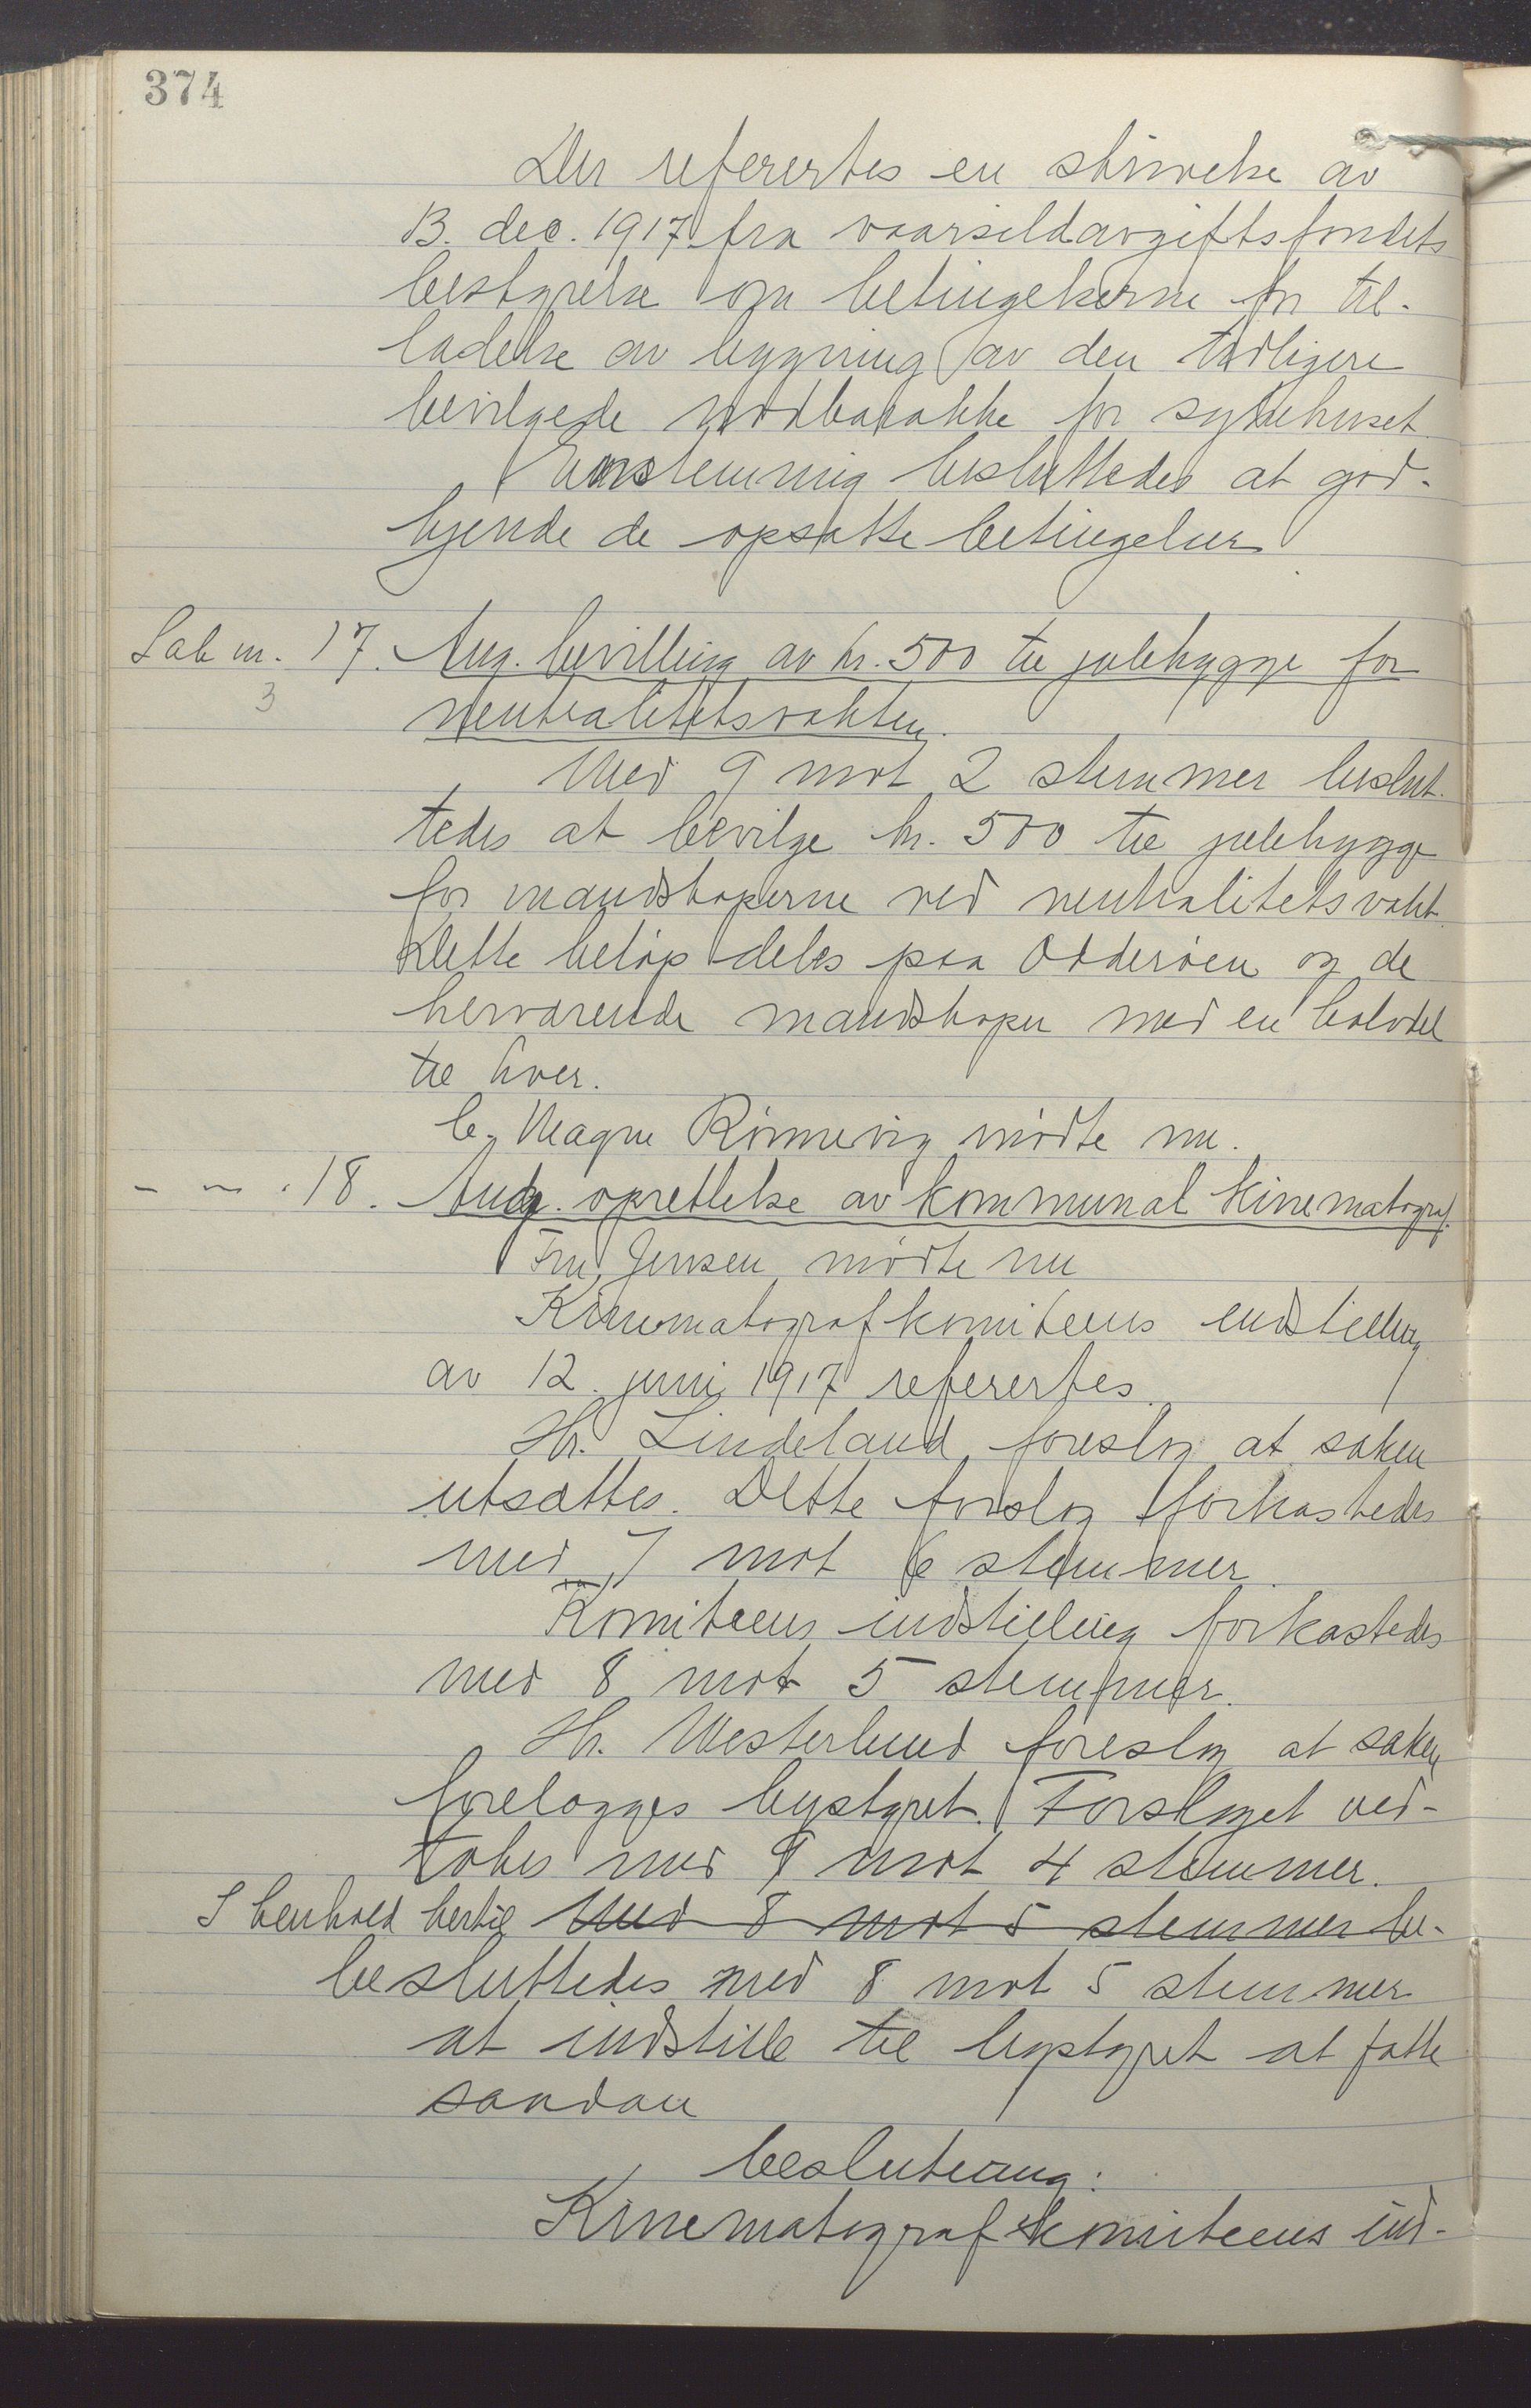 374
Der referertes en skrivelse av
13. dec. 1917 fra vaarsildavgiftsfondets
bestyrelse om betingelserne for til-
ladelse av bygning av den tidligere
bevilgede nødbarakke for sykehuset.
Enstemmig besluttedes at god-
kjende de opsatte betingelser.
Sak nr. 17. Ang. bevilling av kr. 500 til julehygge for
3
neutralitetsvakten.
Med 9 mot 2 stemmer beslut-
tedes at bevilge kr. 500 til julehygge
for mandskaperne ved neutralitetsvakt.
Dette beløp deles paa Odderøen og de
herværende mandskaper med en halvdel
til hver.
Magne Rønnevig mødte nu.
— „ — 18. Ang. oprettelse av kommunal kinematograf.
Fru Jensen mødte nu
Kinematografkomiteens indstilling
av 12. juni 1917 referertes.
Hr. Lindeland foreslog at saken
utsættes. Dette forslag forkastedes
med 7 mot 6 stemmer.
Komiteens indstilling forkastedes
med 8 mot 5 stemmer.
Hr. Westerlund foreslog at saken
forelægges bystyret. Forslaget ved-
tokes med 9 mot 4 stemmer.
I henhold hertil med 8 mot 5 stemmer be-
besluttedes med 8 mot 5 stemmer
at indstille til bystyret at fatte
saadan
beslutning:
Kinematografkomiteens ind-